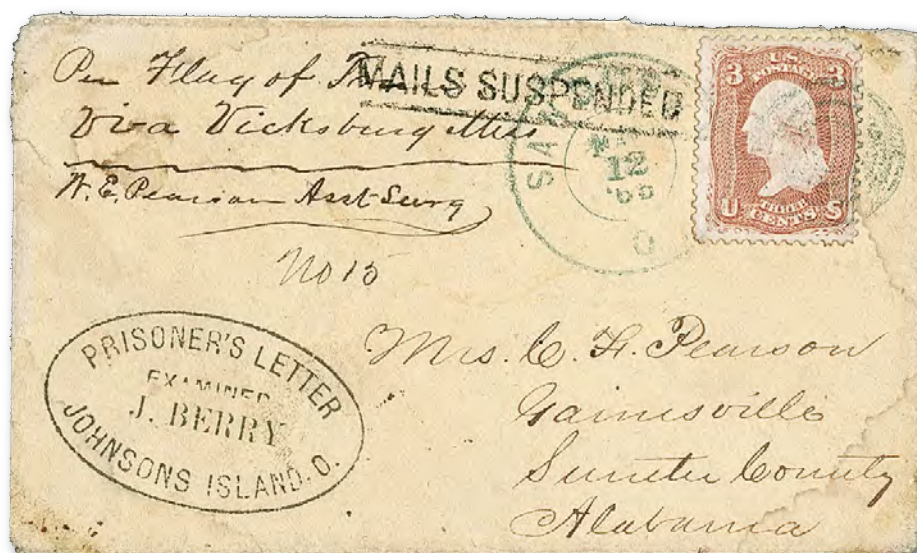 Per Flag of
MAILS SUSPENDED
Via Vicksburg Miss
W. E. Pearson Asst Surg
No 15
SA
12
O
3 U.S. POSTAGE 3
THREE
U CENTS S
PRISONER'S LETTER
EXAMINED
J. BERRY
JOHNSONS ISLAND. O.
Mrs. C. H. Pearson
Gainesville
Sumter County
Alabama